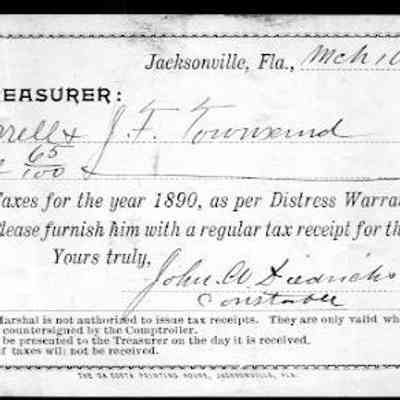 Jacksonville, Fla., Mch 10
EASURER:
rrell & J. F. Townsend
65/100
Taxes for the year 1890, as per Distress Warra
lease furnish him with a regular tax receipt for th
Yours truly,
John W Diedricks
Constable
Marshal is not authorized to issue tax receipts. They are only valid whe
countersigned by the Comptroller.
be presented to the Treasurer on the day it is received.
f taxes will not be received.
THE DA COSTA PRINTING HOUSE, JACKSONVILLE, FLA.